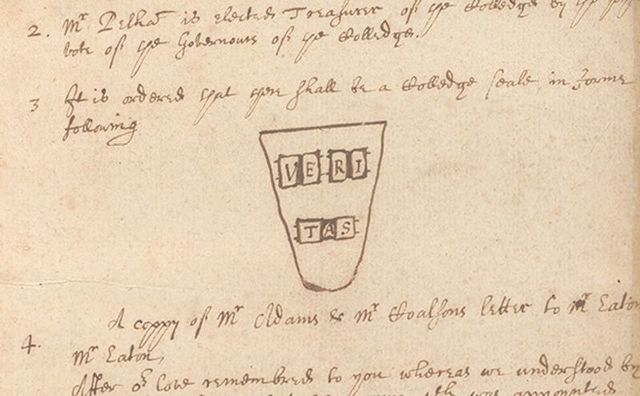 2. Mr Pelhā is elected Treasurer of ye Colledge by ye joynt
vote of ye Governours of ye Colledge.
3 It is ordered yat yere shall be a Colledge seale in forme
following
VERI
TAS
4. A coppy of Mr Adams & Mr Coalsons letter to Mr Eaton
Mr Eaton,
After or love remembred to you whereas we understood by
was